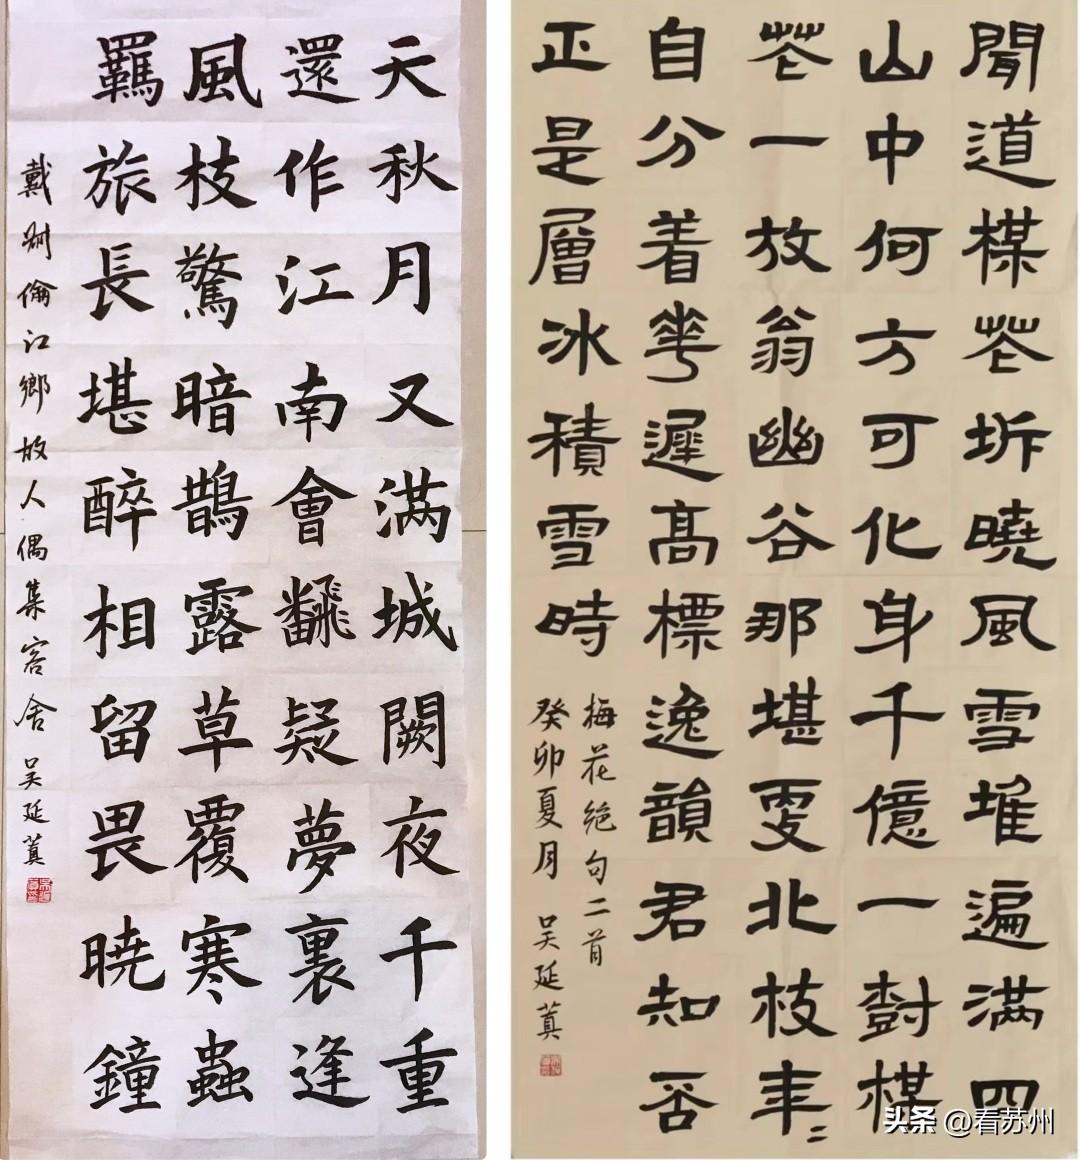 天秋月又满城闕夜千重
還作江南會飜疑夢裏逢
風枝驚暗鵲露草覆寒蟲
羈旅長堪醉相留畏暁鐘
戴叔倫江鄉故人偶集客舍 吴延蓂
聞道楳花坼曉風雪堆遍满四
山中何方可化身千億一樹楳
花一放翁幽谷那堪更北枝年二
自分着華遲高標逸韻君知否
正是層冰積雪時
梅花绝句二首
癸卯夏月 吴延蓂
头条 @看苏州